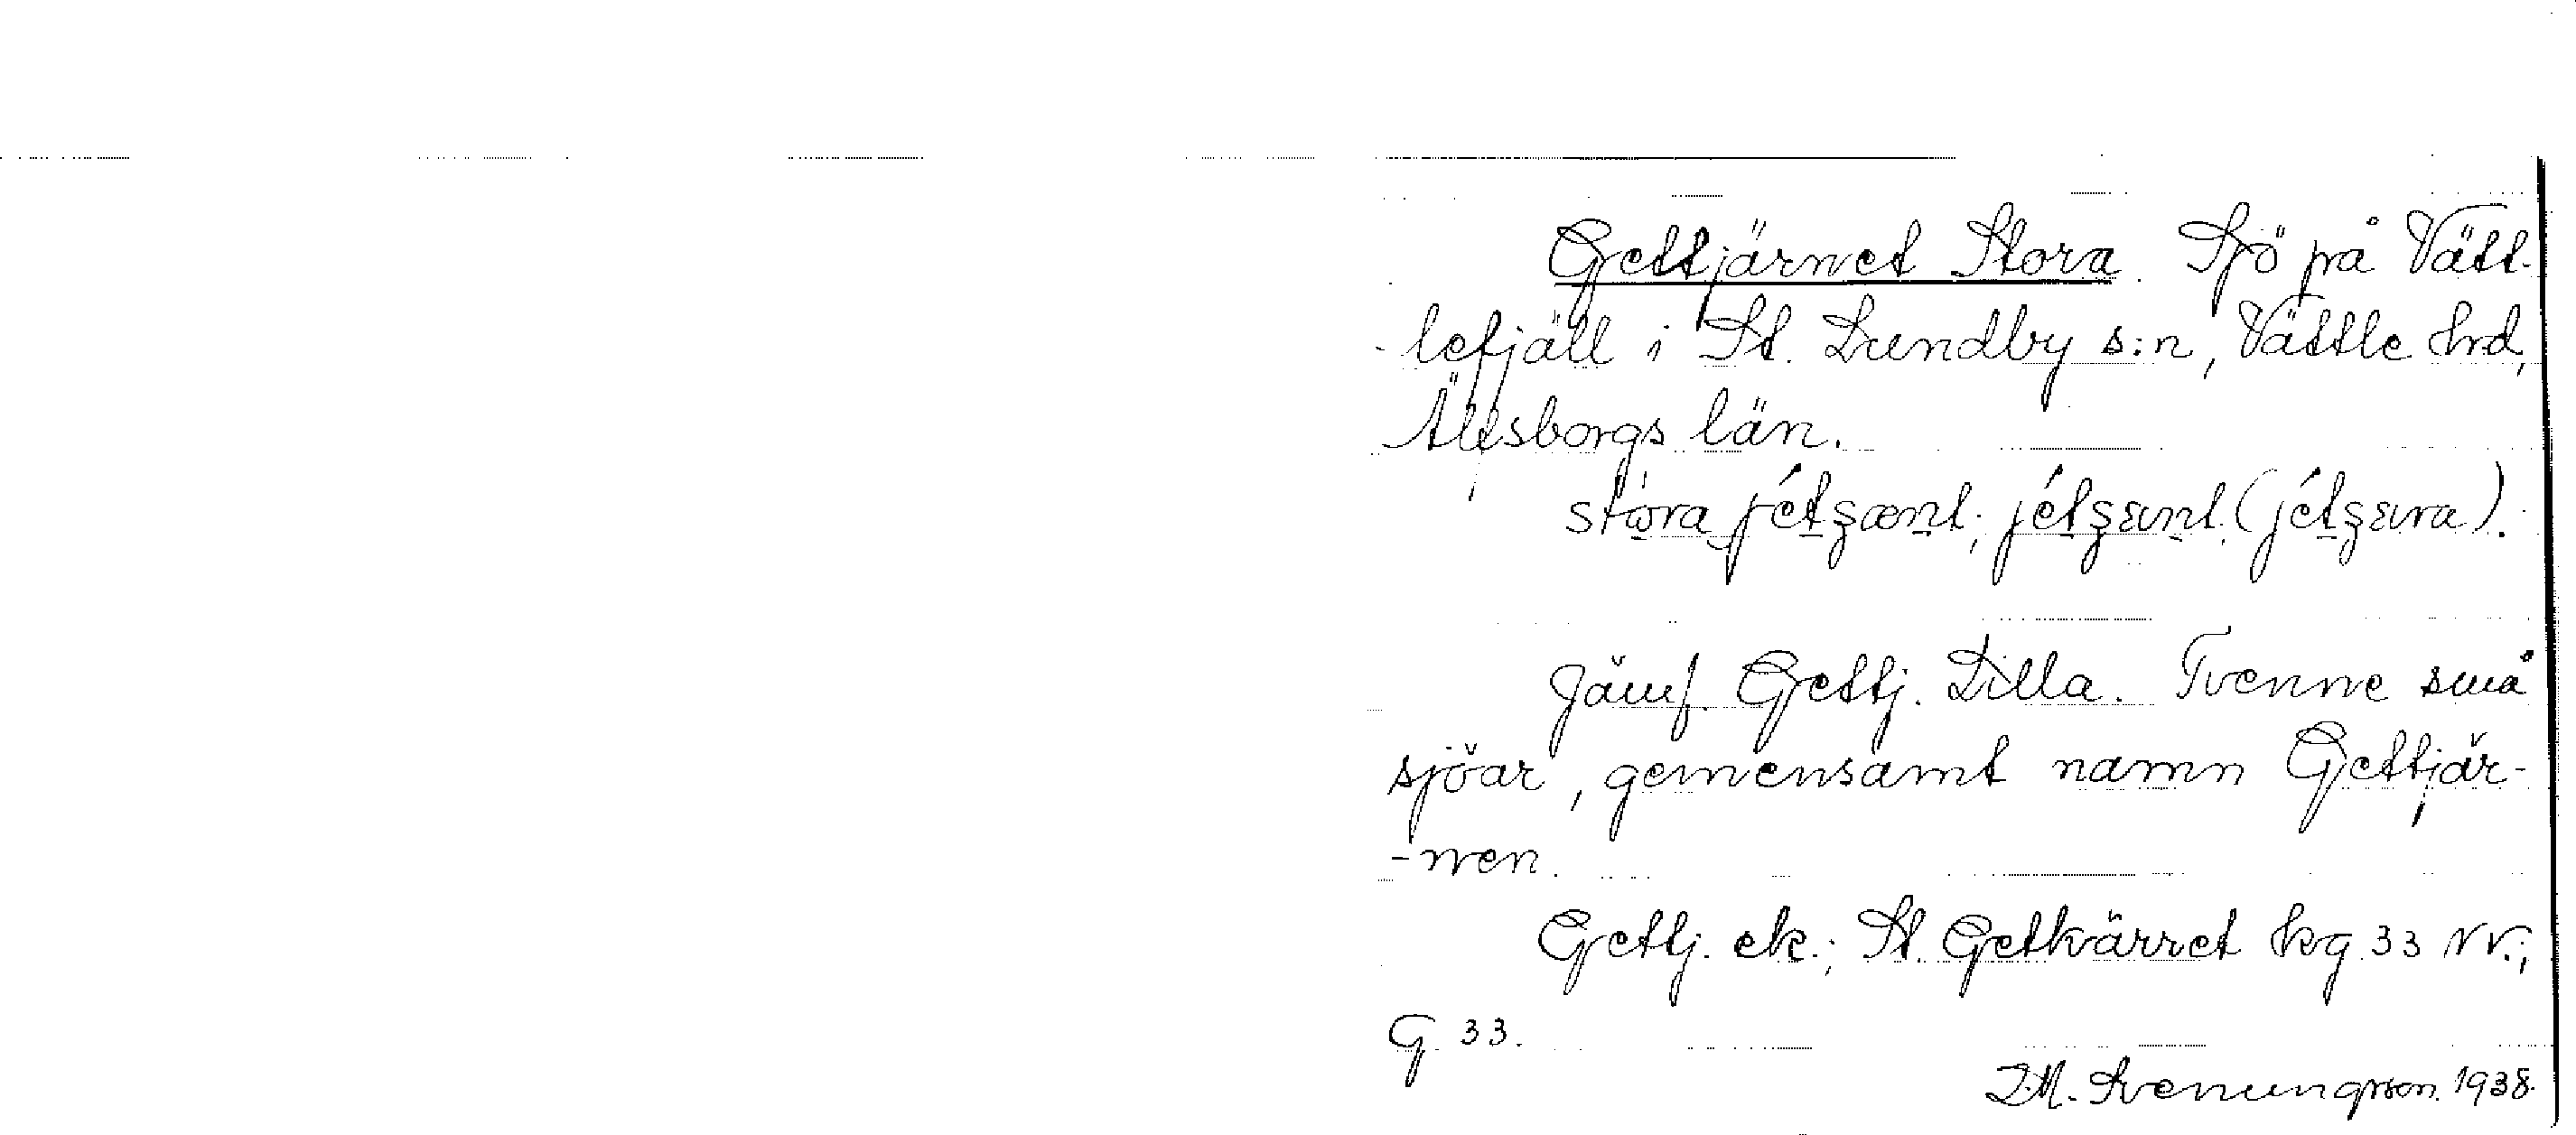 Gettjärnet Stora. Sjö på Vätt-
-lefjäll i St. Lundby s:n, Vättle hrd,
Älfsborgs län.
stora
Jämf. Gettj. Lilla. Tvenne små
sjöar, gemensamt namn Gettjär-
-nen.
Gettj. ek.; St. Getkärret kg 33 NV.;
G 33.
Svenungsson 1938.